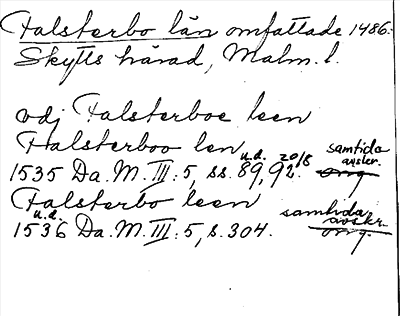 Falsterbo län omfattade 1486:
Skytts härad, Malm. l.
vdj Falsterboe leen
Falsterboo len samtida
u.d. 20/8 avskr.
1535 Da. M. III: 5, ss. 89, 92. orig
Falsterbo leen samtida
u.d. avskr.
1536 Da. M. III: 5, s. 304. orig.